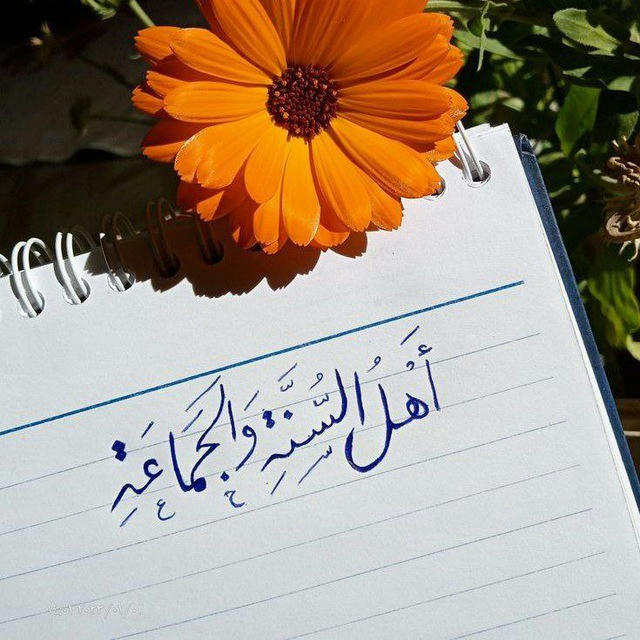 أَهْلُ السُّنَّةِ وَالْجَمَاعَةِ